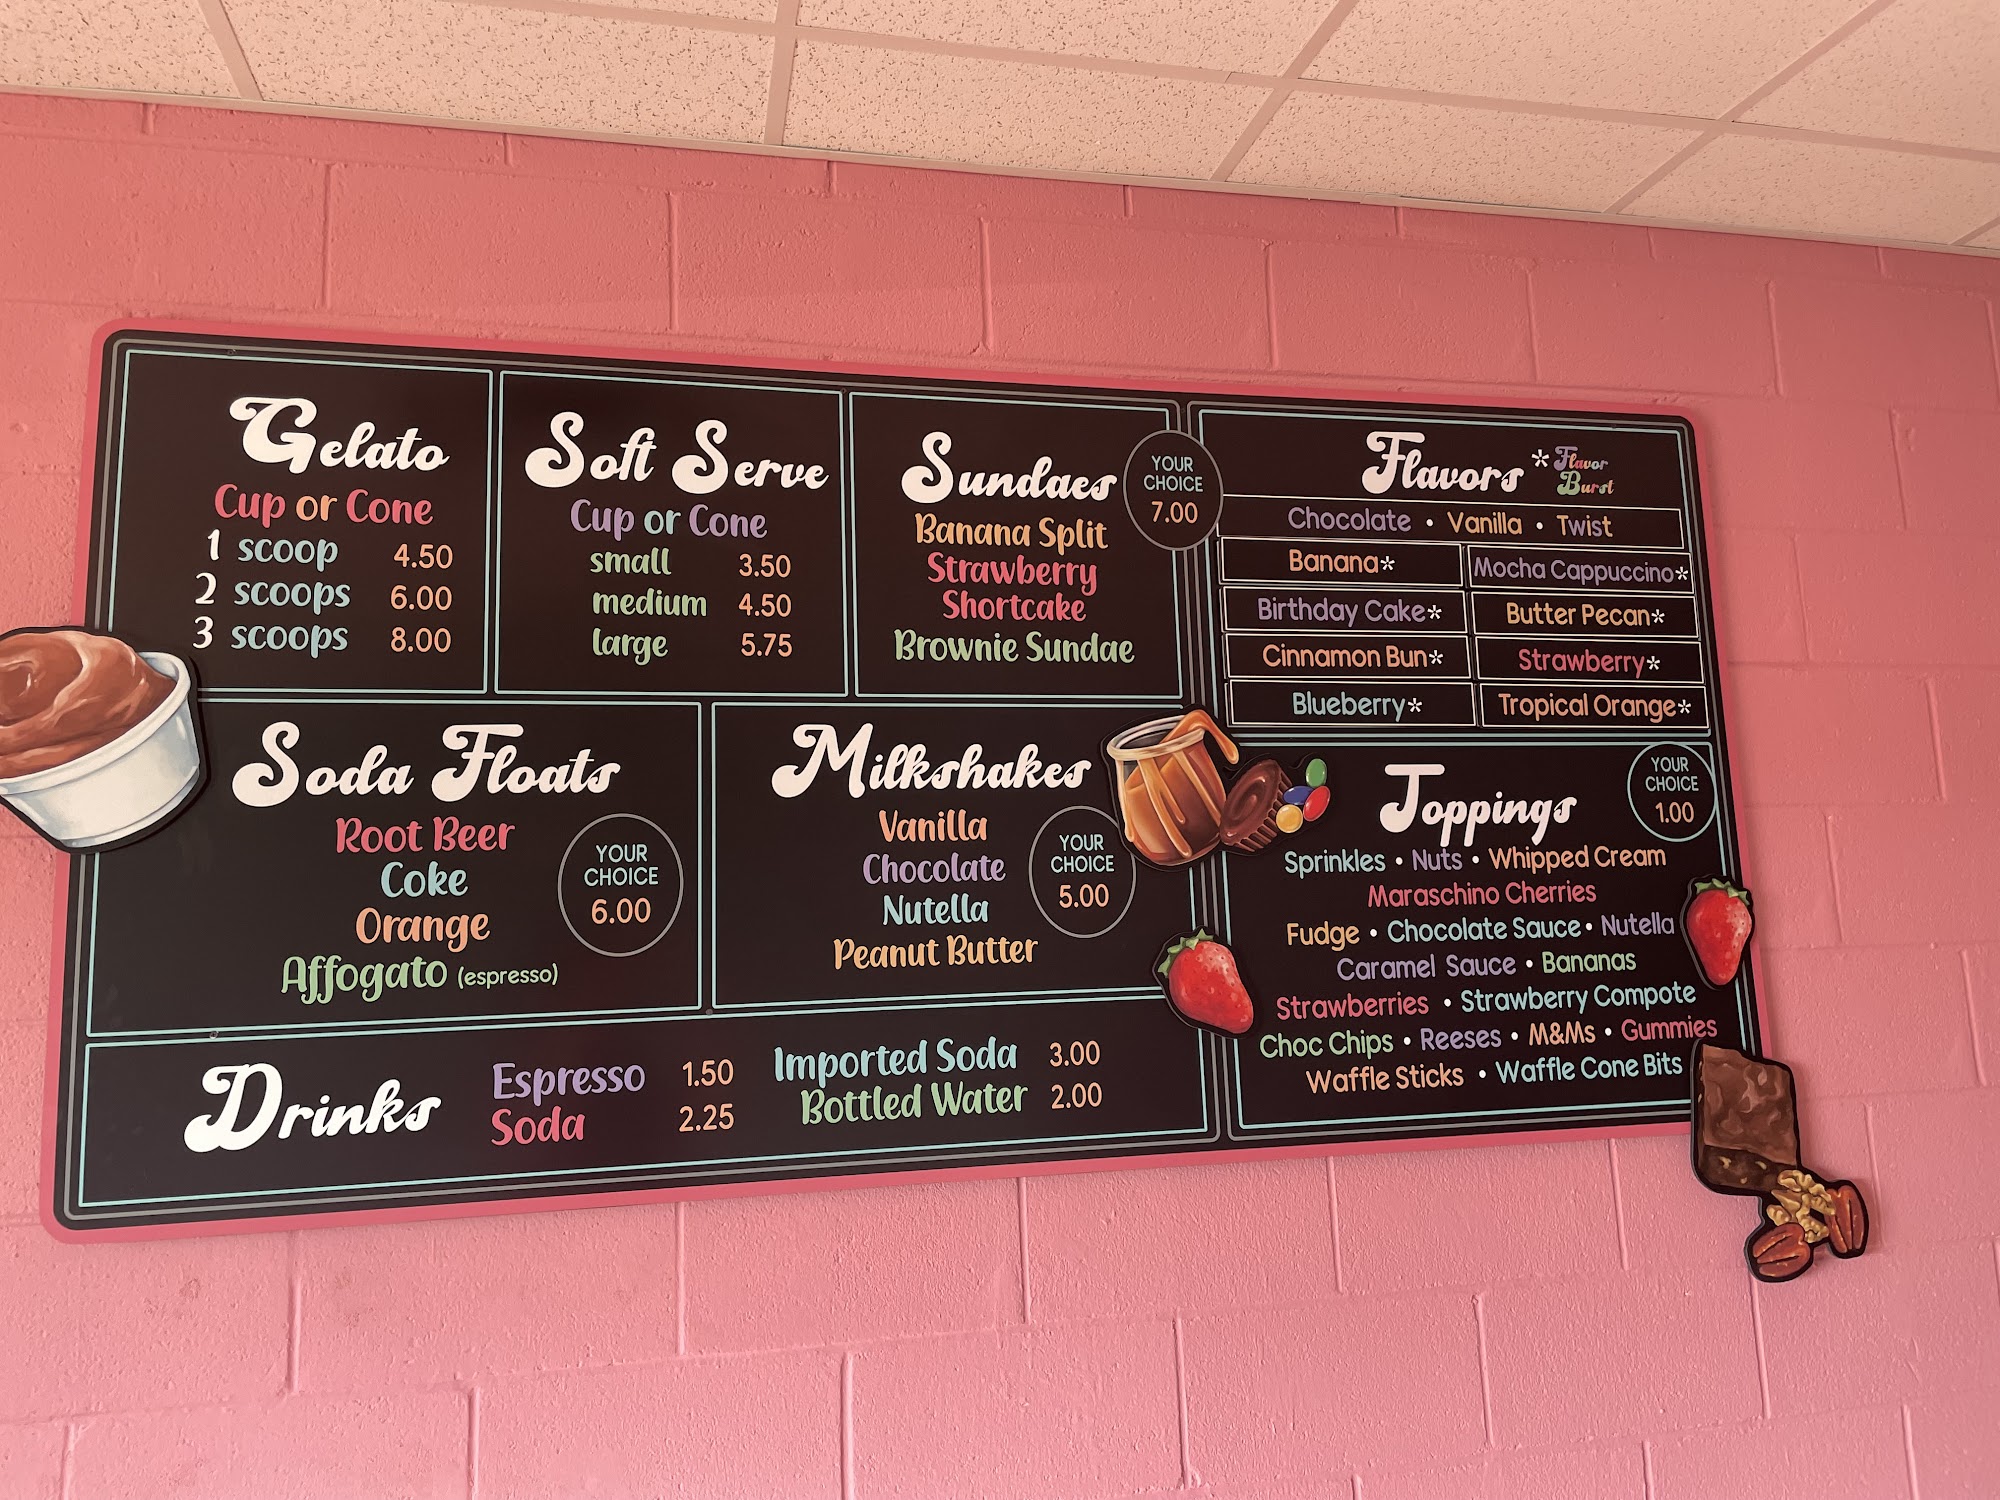 Gelato
Cup or Cone
1 scoop 4.50
2 scoops 6.00
3 scoops 8.00
Soft Serve
Cup or Cone
small 3.50
medium 4.50
large 5.75
Sundaes
YOUR
CHOICE
7.00
Banana Split
Strawberry
Shortcake
Brownie Sundae
Flavors *Flavor
Burst
Chocolate • Vanilla • Twist
Banana* Mocha Cappuccino*
Birthday Cake* Butter Pecan*
Cinnamon Bun* Strawberry*
Blueberry* Tropical Orange*
Soda Floats
Root Beer
Coke
Orange
Affogato (espresso)
YOUR
CHOICE
6.00
Milkshakes
Vanilla
Chocolate
Nutella
Peanut Butter
YOUR
CHOICE
5.00
Toppings
YOUR
CHOICE
1.00
Sprinkles • Nuts • Whipped Cream
Maraschino Cherries
Fudge • Chocolate Sauce • Nutella
Caramel Sauce • Bananas
Strawberries • Strawberry Compote
Choc Chips • Reeses • M&Ms • Gummies
Waffle Sticks • Waffle Cone Bits
Drinks
Espresso 1.50
Soda 2.25
Imported Soda 3.00
Bottled Water 2.00